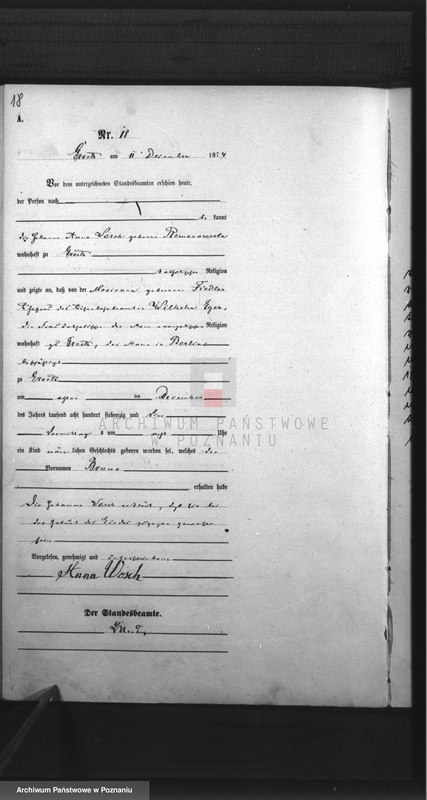 18
A.
Nr. 18
Graetz am 11 Dezember 1874
Vor dem unterzeichneten Standesbeamten erschien heute,
der Person nach
be kannt
die Hebamme Anna Wosch geborene Romanowska
wohnhaft zu Graetz
katholischer Religion
und zeigte an, daß von der Marianna geborene Fiedler
Ehefrau des Wilhelm
die Frau katholischer der Mann evangelischer Religion
wohnhaft zu Graetz, der Mann in Berlin
beschäftigt
zu Graetz
am achten ten Dezember
des Jahres tausend acht hundert siebenzig und vier
Vormittags um acht Uhr
ein Kind männ lichen Geschlechts geboren worden sei, welches den
Vornamen Bruno
erhalten habe
Die Hebamme Wosch erklärt, daß sie bei
der Geburt des Kindes zugegen gewesen
sei.
Vorgelesen, genehmigt und unterschrieben
Anna Wosch
Der Standesbeamte.
ARCHIWUM PAŃSTWOWE
W POZNANIU
Archiwum Państwowe w Poznaniu